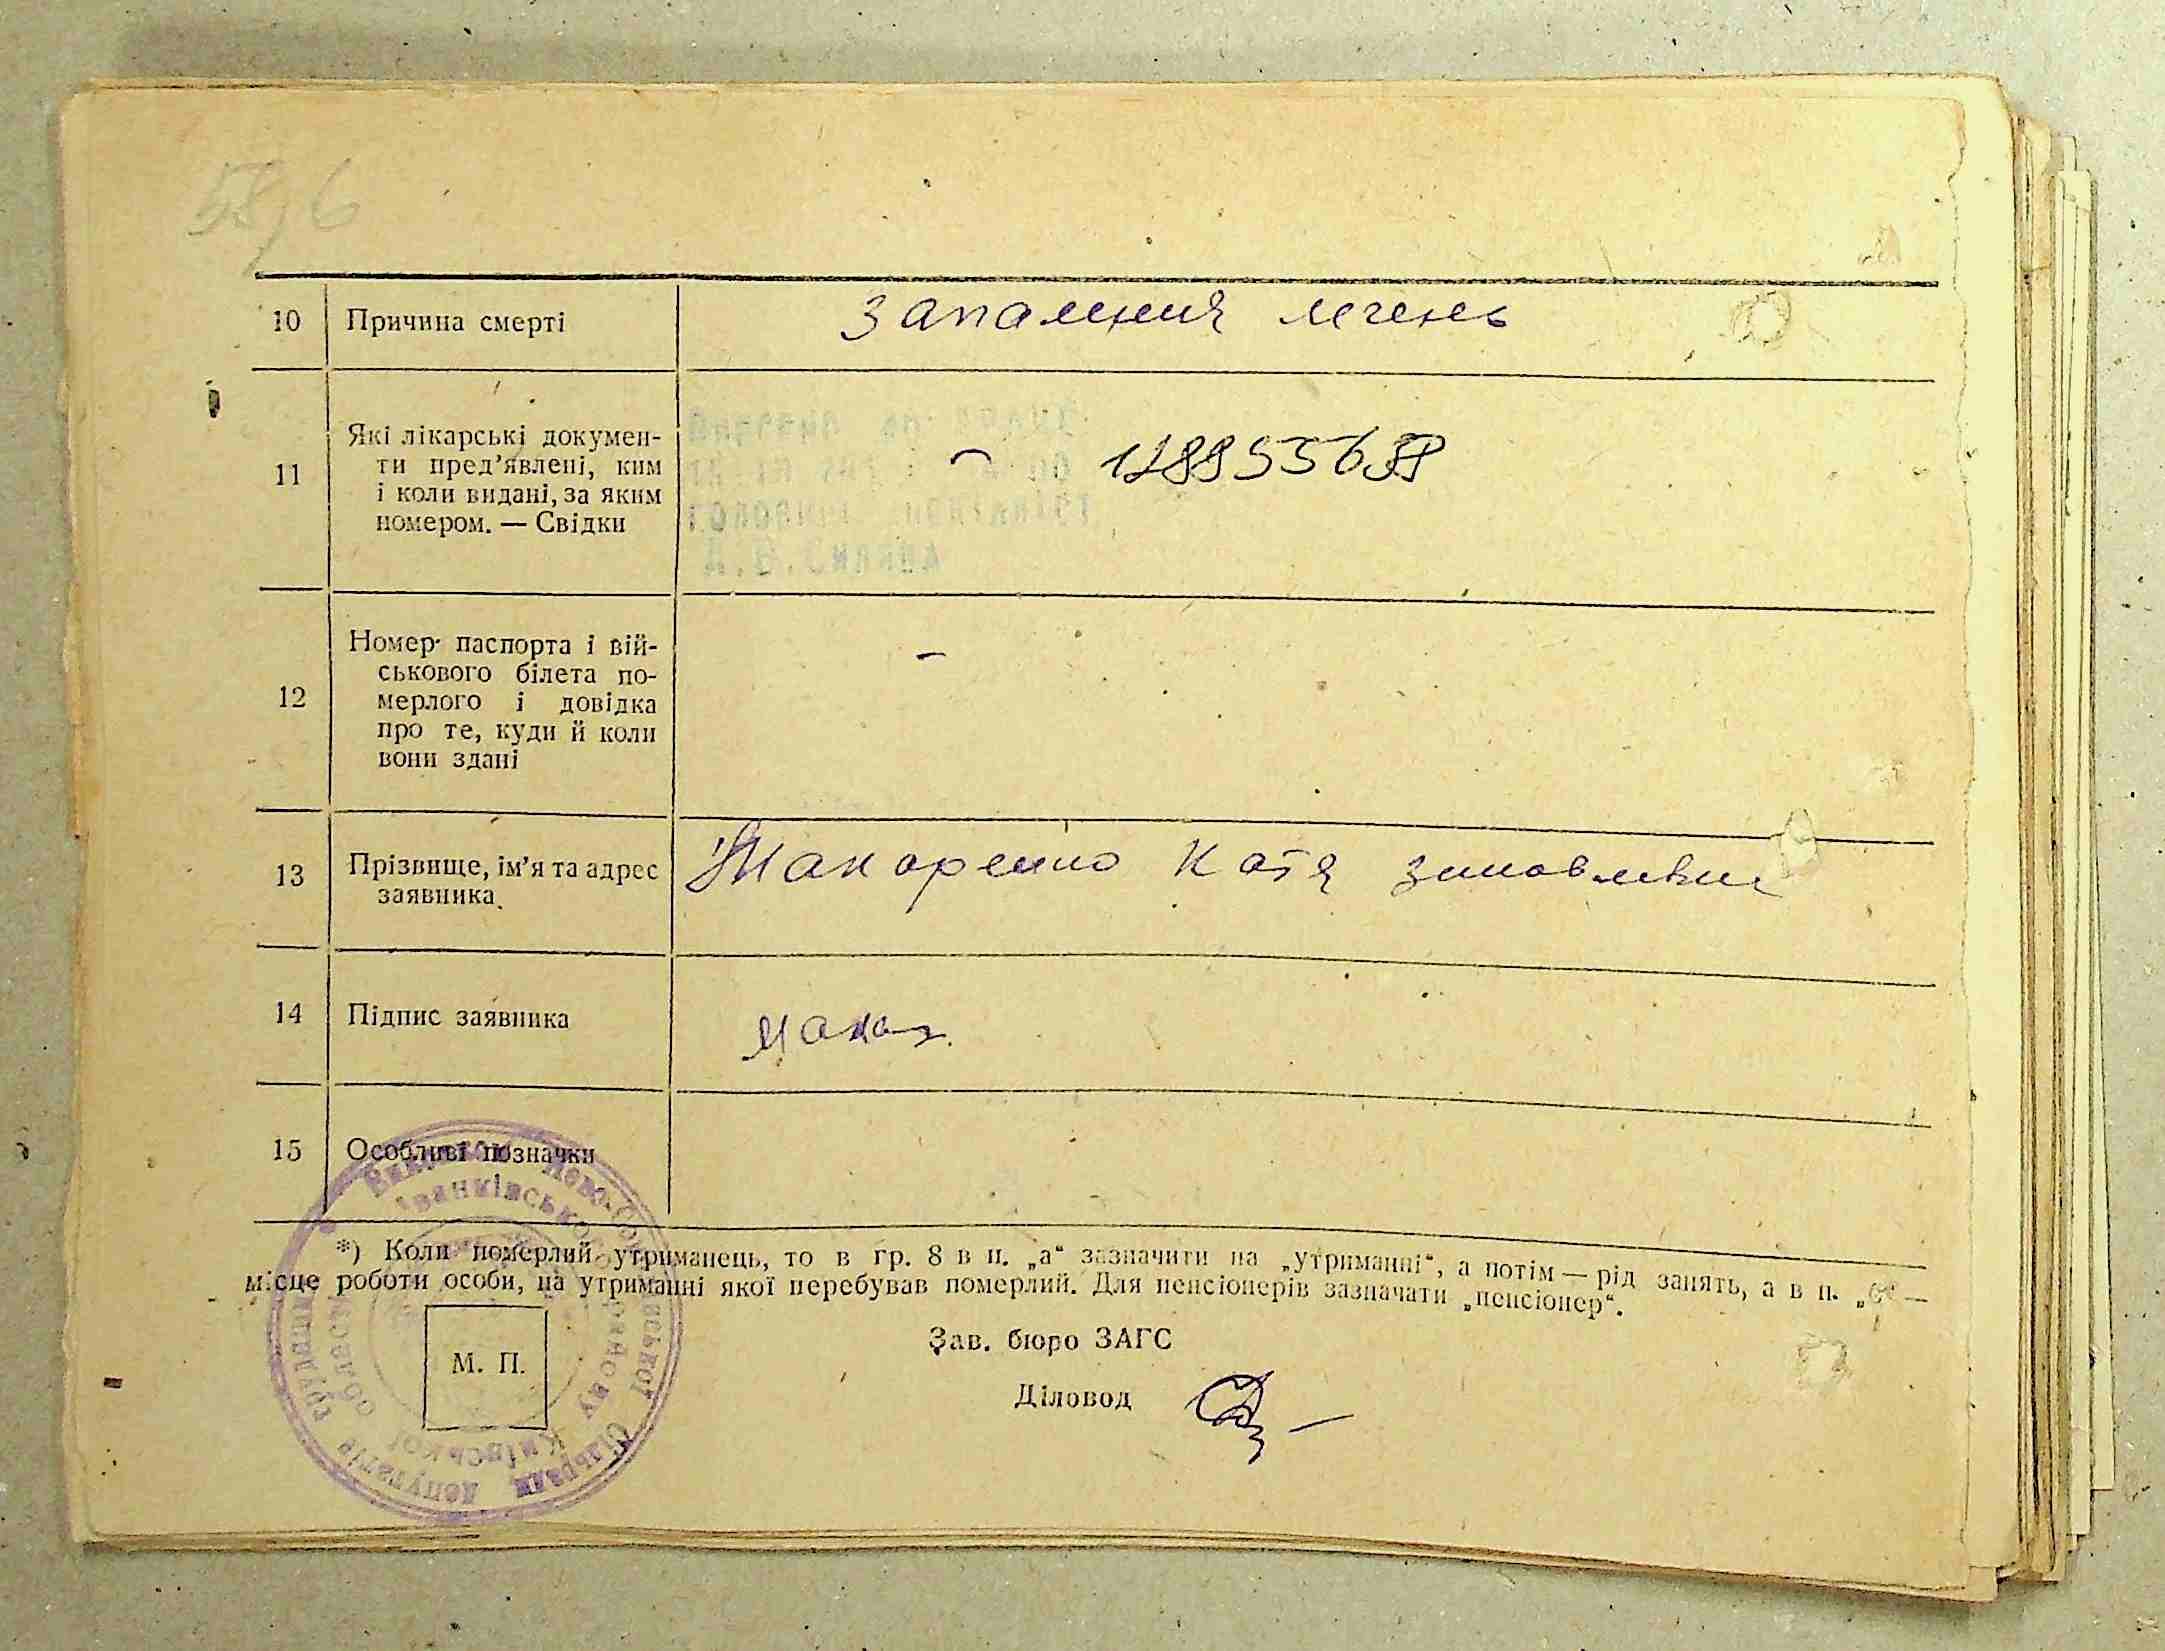 10 Причина смерті запаления легень
11 Які лікарські докумен-
ти пред’явлені, ким
і коли видані, за яким
номером. — Свідки
12 Номер паспорта і вій-
ськового білета по-
мерлого і довідка
про те, куди й коли
вони здані
–
13 Прізвище, ім’я та адрес
заявника
Макаренко Катя
14 Підпис заявника
15 Особливі позначки
*) Коли померлий утриманець, то в гр. 8 в п. „а“ зазначити на „утриманні“, а потім — рід занять, а в п. „б“ —
місце роботи особи, на утриманні якої перебував померлий. Для пенсіонерів зазначати „пенсіонер“.
Зав. бюро ЗАГС
М. П.
Діловод
Іванківського району Київської області
Сільради депутатів трудящих